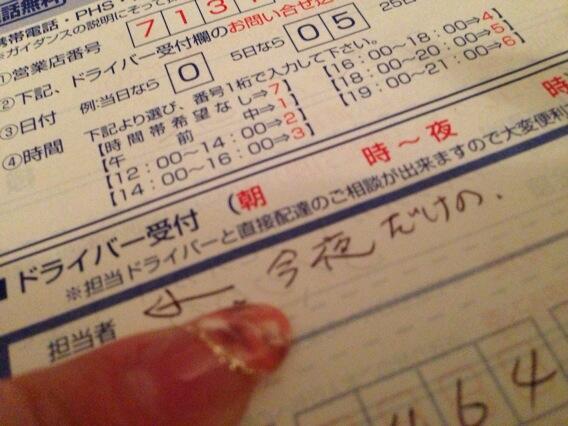 話無料
携帯電話・PHS・
※ガイダンスの説明にそって
①営業店番号 713
②下記、ドライバー受付欄のお問い合せ送
③日付 例:当日なら 0 5日なら 05 25日
④時間 下記より選び、番号1桁で入力して下さい。
【時間帯希望なし⇒7】
【午前中⇒1】
【12:00～14:00⇒2】
【14:00～16:00⇒3】
【16:00～18:00⇒4】
【18:00～20:00⇒5】
【19:00～21:00⇒6】
ドライバー受付 (朝 時～夜 時
※担当ドライバーと直接配達のご相談が出来ますので大変便利
← 今夜だけの.
担当者
464